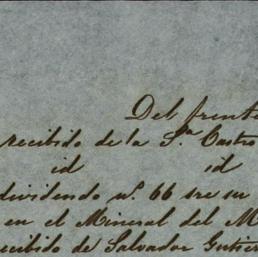 Del frente
recibido de la S.ª Castro
id id
dividendo nº. 66 sre su
en el Mineral del M
recibido de Salvador Gutier